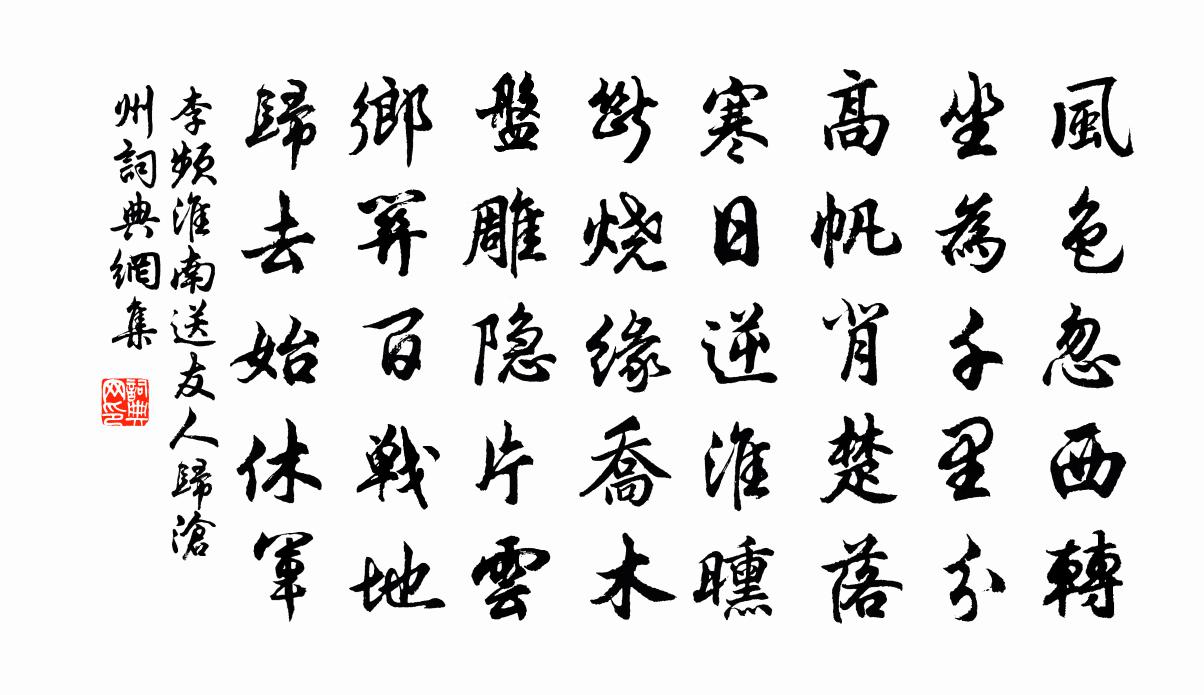 風色忽西轉
坐為千里分
高帆背楚落
寒日逆淮曛
斷烧緣喬木
盤雕隐片雲
鄉關百戦地
歸去始休軍
李頻淮南送友人歸滄
州詞典網集
詞典
网印